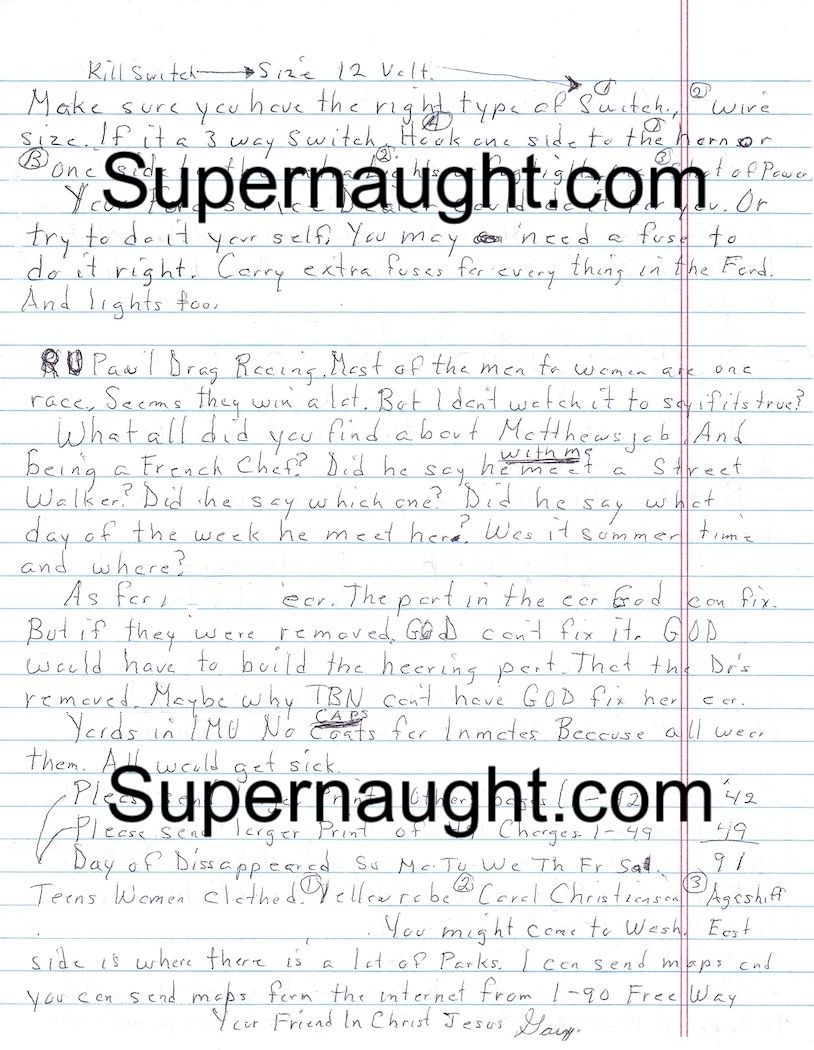 Kill Switch → Size 12 Volt.
Make sure you have the right type of Switch., ① ② wire
size. If it a 3 way Switch Hook one side to the horn or Ⓐ ①
Ⓑ one side ② ③ of Power
Supernaught.com
Your Ford Service Dealer could do it for you. Or
try to do it your self, You may need a fuse to
do it right. Carry extra fuses for every thing in the Ford.
And lights too.
Paul Drag Racing. Most of the men to women are one
race. Seems they win a lot. But I don't watch it to say if its true?
What all did you find about Matthews job. And
being a French Chef? Did he say he meet with me a Street
Walker? Did he say which one? Did he say what
day of the week he meet her? Was it summer time
and where?
As for ear. The part in the ear God can fix.
But if they were removed. GOD can't fix it. GOD
would have to build the hearing part. That the Dr's
removed. Maybe why TBN can't have GOD fix her ear.
Yards in IMU No Coats CAPS for Inmates Because all wear
them. All would get sick.
Please send larger Print Others pages 1-42 42
Supernaught.com
Please send larger Print of 49 Charges 1-49 49
Day of Dissappeared Su Mo Tu We Th Fr Sat. 91
Teens Women Clothed. ① Yellow robe ② Carol Christiansen ③
You might come to Wash. East
side is where there is a lot of Parks. I can send maps and
you can send maps form the internet from I-90 Free Way
Your Friend In Christ Jesus Gary.